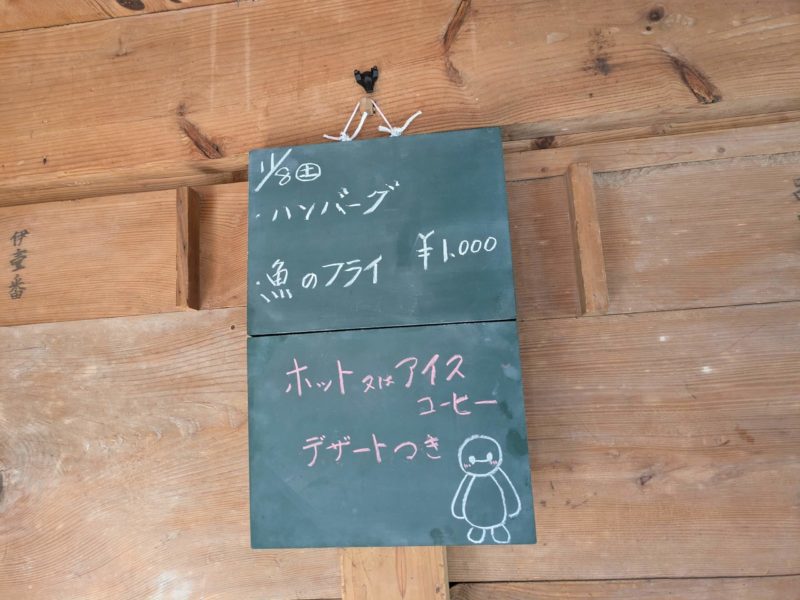 11/8㊏
・ハンバーグ
・魚のフライ ¥1,000
ホット又はアイス
コーヒー
デザートつき
伊壱番